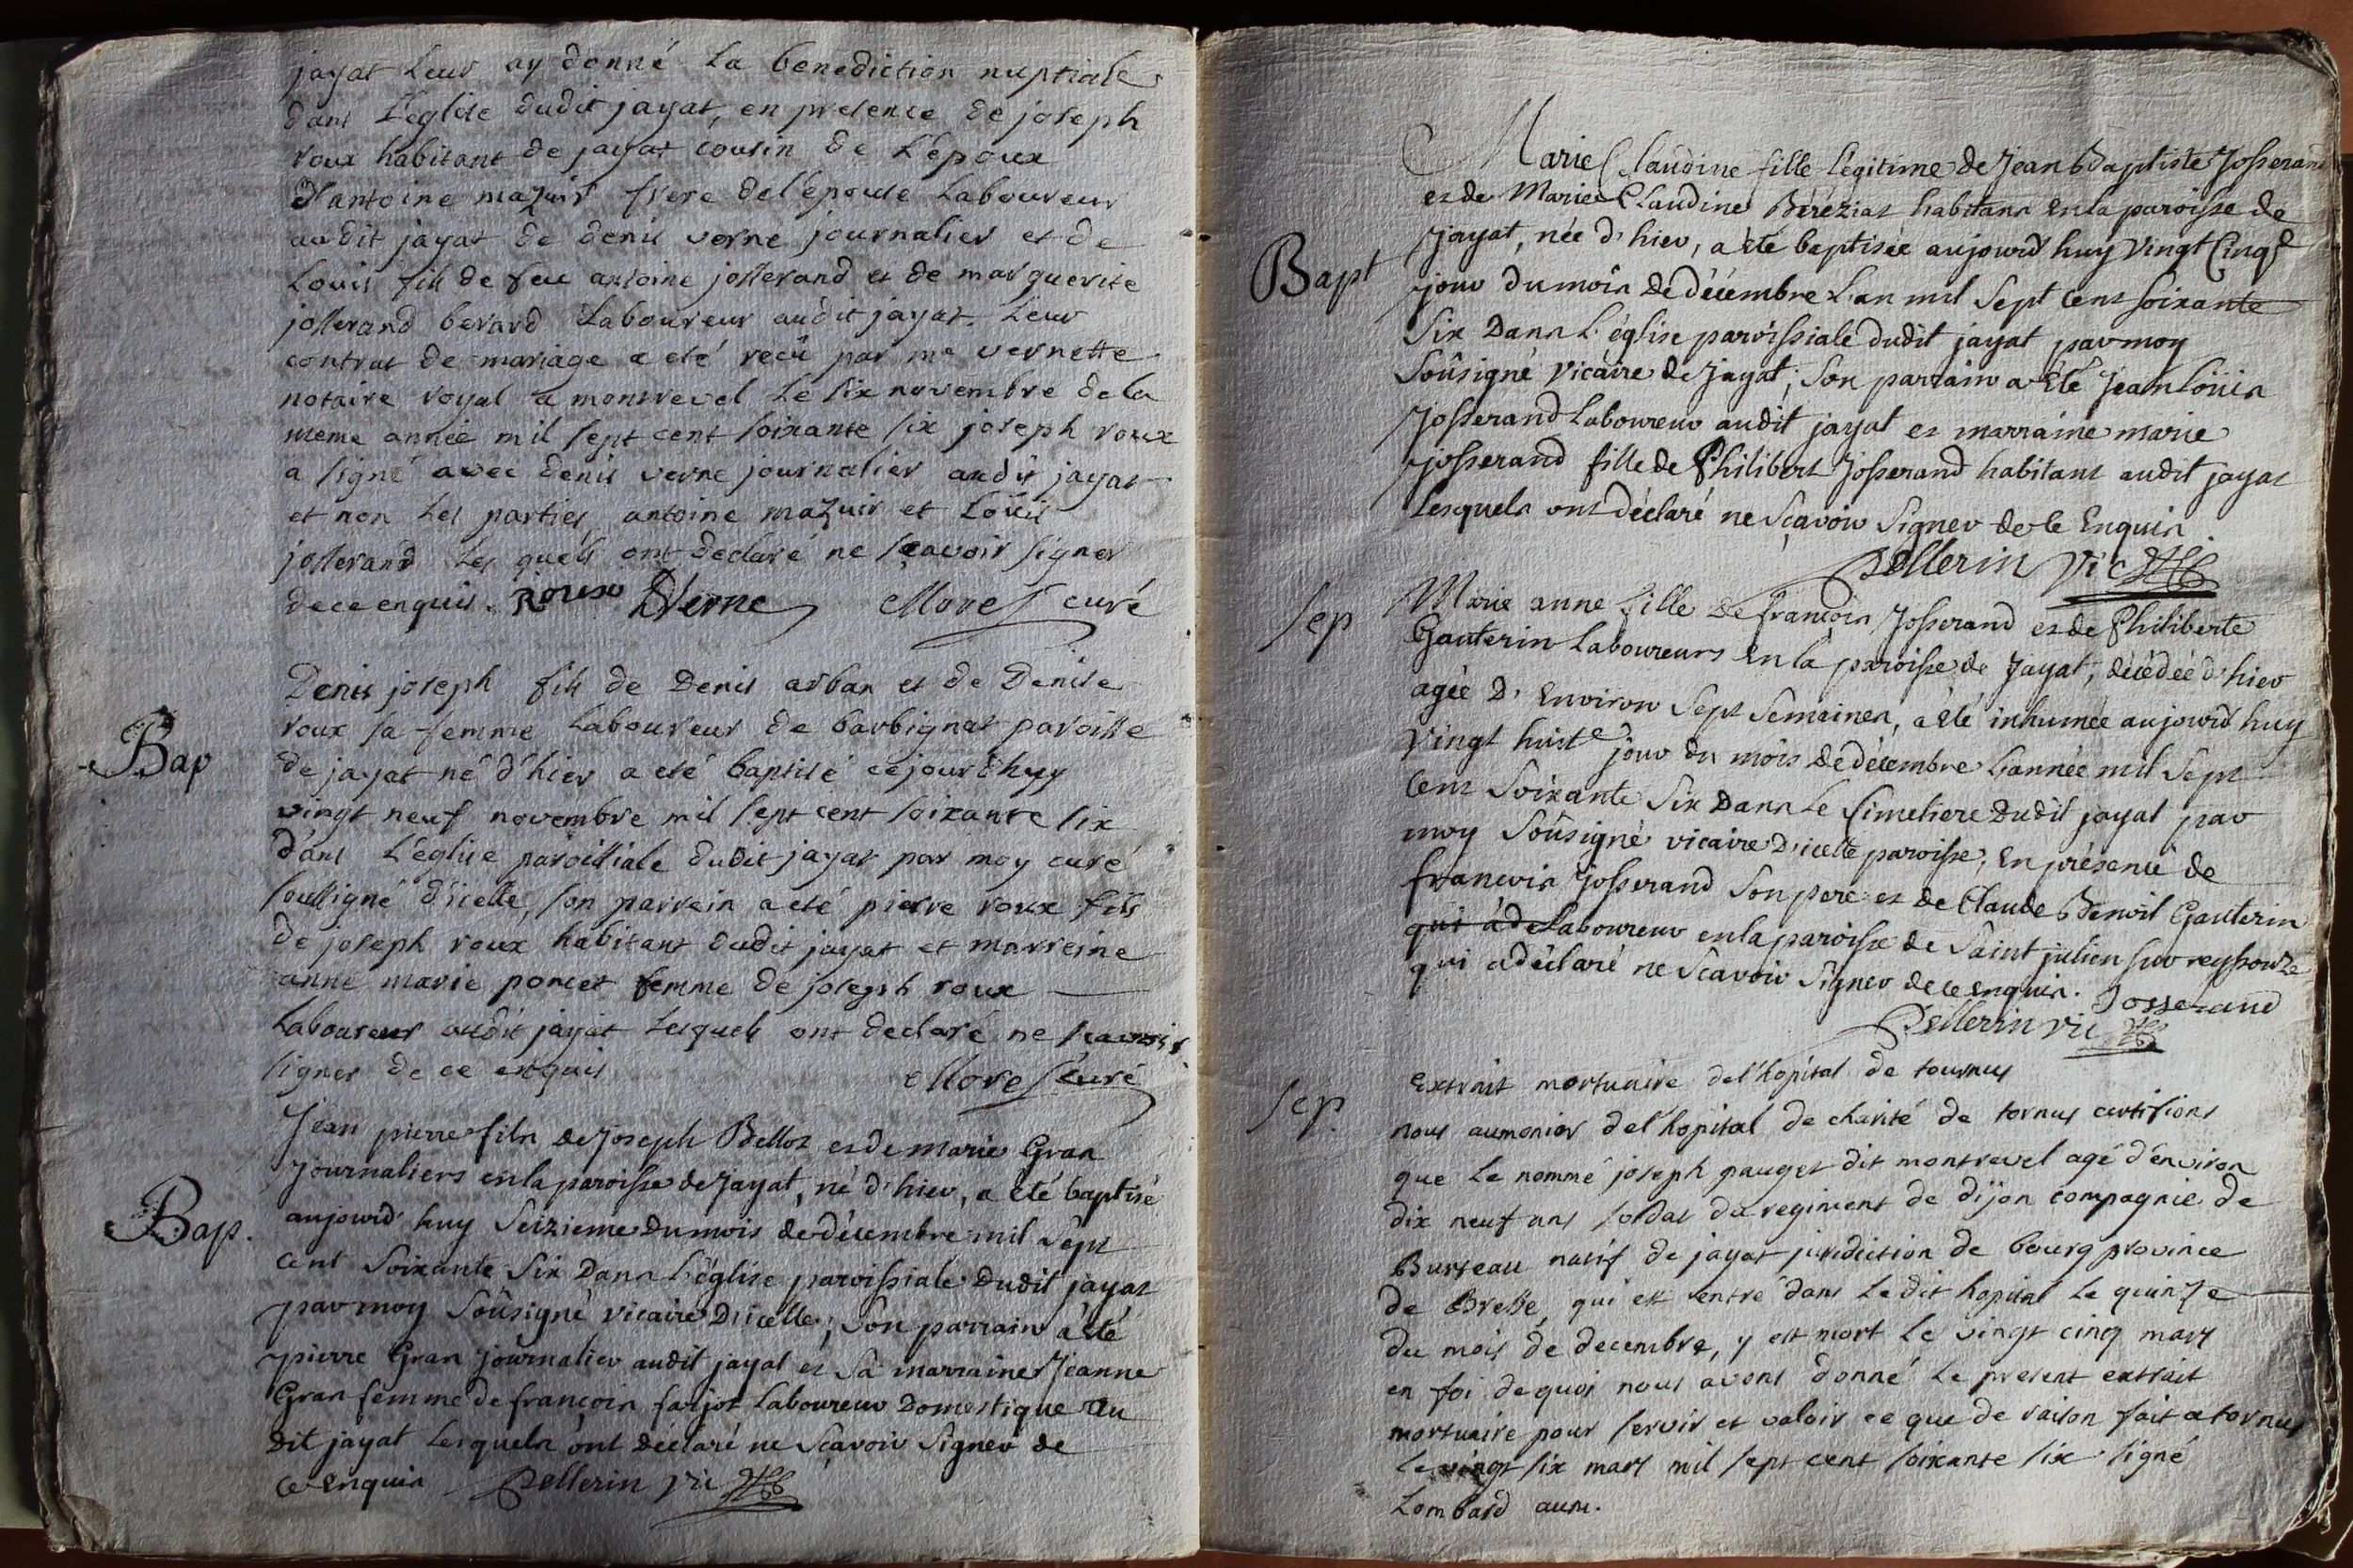 jayat leur ay donné la benediction nuptiale
dans l'église dudit jayat, en presence de joseph
roux habitant de jayat cousin de l'epoux
d'antoine mazuir frere de l'epouse laboureur
audit jayat de denis verne journalier et de
Louis fils de feu antoine josserand et de marguerite
josserand berard laboureur audit jayat. leur
contrat de mariage a eté reçû par me vernette
notaire royal a montrevel le six novembre de la
meme année mil sept cent soixante six joseph roux
a signé avec denis verne journalier audit jayat
et non les parties antoine mazuir et Loüis
josserand les quels ont declaré ne sçavoir signer
de ce enquis. Roux DVerne Morel curé
Denis joseph fils de Denis arban et de Denise
roux sa femme laboureur de barbignat paroisse
Bap
de jayat né d'hier a eté baptisé cejourd'huy
vingt neuf novembre mil sept cent soixante six
dans l'église paroissiale dudit jayat par moy curé
soussigné d'icelle, son parrein a eté pierre roux fils
de joseph roux habitant dudit jayat et marreine
anne marie poncet femme de joseph roux
laboureur audit jayat lesquels ont declaré ne sçavoir
signer de ce enquis Morel curé
Jean pierre fils de Joseph Bellot et de marie Gran
journaliers en la paroisse de Jayat, né d'hier, a été baptisé
Bap.
aujourd'huy Seizieme du mois de décembre mil sept
cent soixante six Dans l'église paroissiale Dudit jayat
par moy Soûsigné vicaire D'icelle; Son parrain a été
pierre Gran journalier audit jayat et sa marraine Jeanne
Gran femme de françois farjot laboureur Domestique au
dit jayat lesquels ont déclaré ne Sçavoir Signer de
ce Enquis Pellerin vic
Marie Claudine fille légitime de Jean Baptiste Josserand
et de Marie Claudine Béréziat habitans en la paroisse de
Bapt
Jayat, née d'hier, a été baptisée aujourd'huy vingt Cinqe
jour du mois de décembre l'an mil Sept Cent soixante
Six Dans l'église paroissiale dudit jayat par moy
Soûsigné vicaire de Jayat; Son parrain a été Jean Loüis
Josserand laboureur audit jayat et marraine marie
Josserand fille de Philibert Josserand habitant audit jayat
lesquels ont déclaré ne Sçavoir Signer de ce Enquis.
Pellerin vic
Sep
Marie anne fille de françois Josserand et de Philiberte
Gauterin laboureurs en la paroisse de Jayat, décédée d'hier
agée D'Environ Sept Semaines, a été inhumée aujourd'huy
vingt huite jour du mois de décembre l'année mil Sept
Cent Soixante Six Dans le Cimetiere Dudit jayat par
moy Soûsigné vicaire D'icelle paroisse; en présence de
françois Josserand Son pere et de Claude Benoit Gauterin
qui a de laboureur en la paroisse de Saint julien sur reyssouze
qui a déclaré ne Scavoir Signer de ce enquis. Josserand
Pellerin vic
Sep.
Extrait mortuaire de l'hopital de tournus
nous aumonier de l'hopital de charité de tornus certifions
que le nommé joseph pauget dit montrevel agé d'environ
dix neuf ans soldat du regiment de dijon compagnie de
Burteau natif de jayat juridiction de bourg province
de Bresse, qui est entré dans le dit hopital le quinze
du mois de decembre, y est mort le vingt cinq mars
en foi de quoi nous avons donné le present extrait
mortuaire pour servir et valoir ce que de raison fait a tornus
le vingt six mars mil sept cent soixante six signé
Lombard aum.